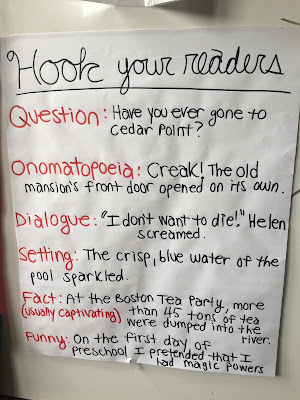 Hook your readers
Question: Have you ever gone to
Cedar Point?
Onomatopoeia: Creak! The old
mansion's front door opened on its own.
Dialogue: "I don't want to die!" Helen
screamed.
Setting: The crisp, blue water of the
pool sparkled.
Fact: At the Boston Tea Party, more
(usually captivating) than 45 tons of tea
were dumped into the
river.
Funny: On the first day of
preschool I pretended that I
had magic powers